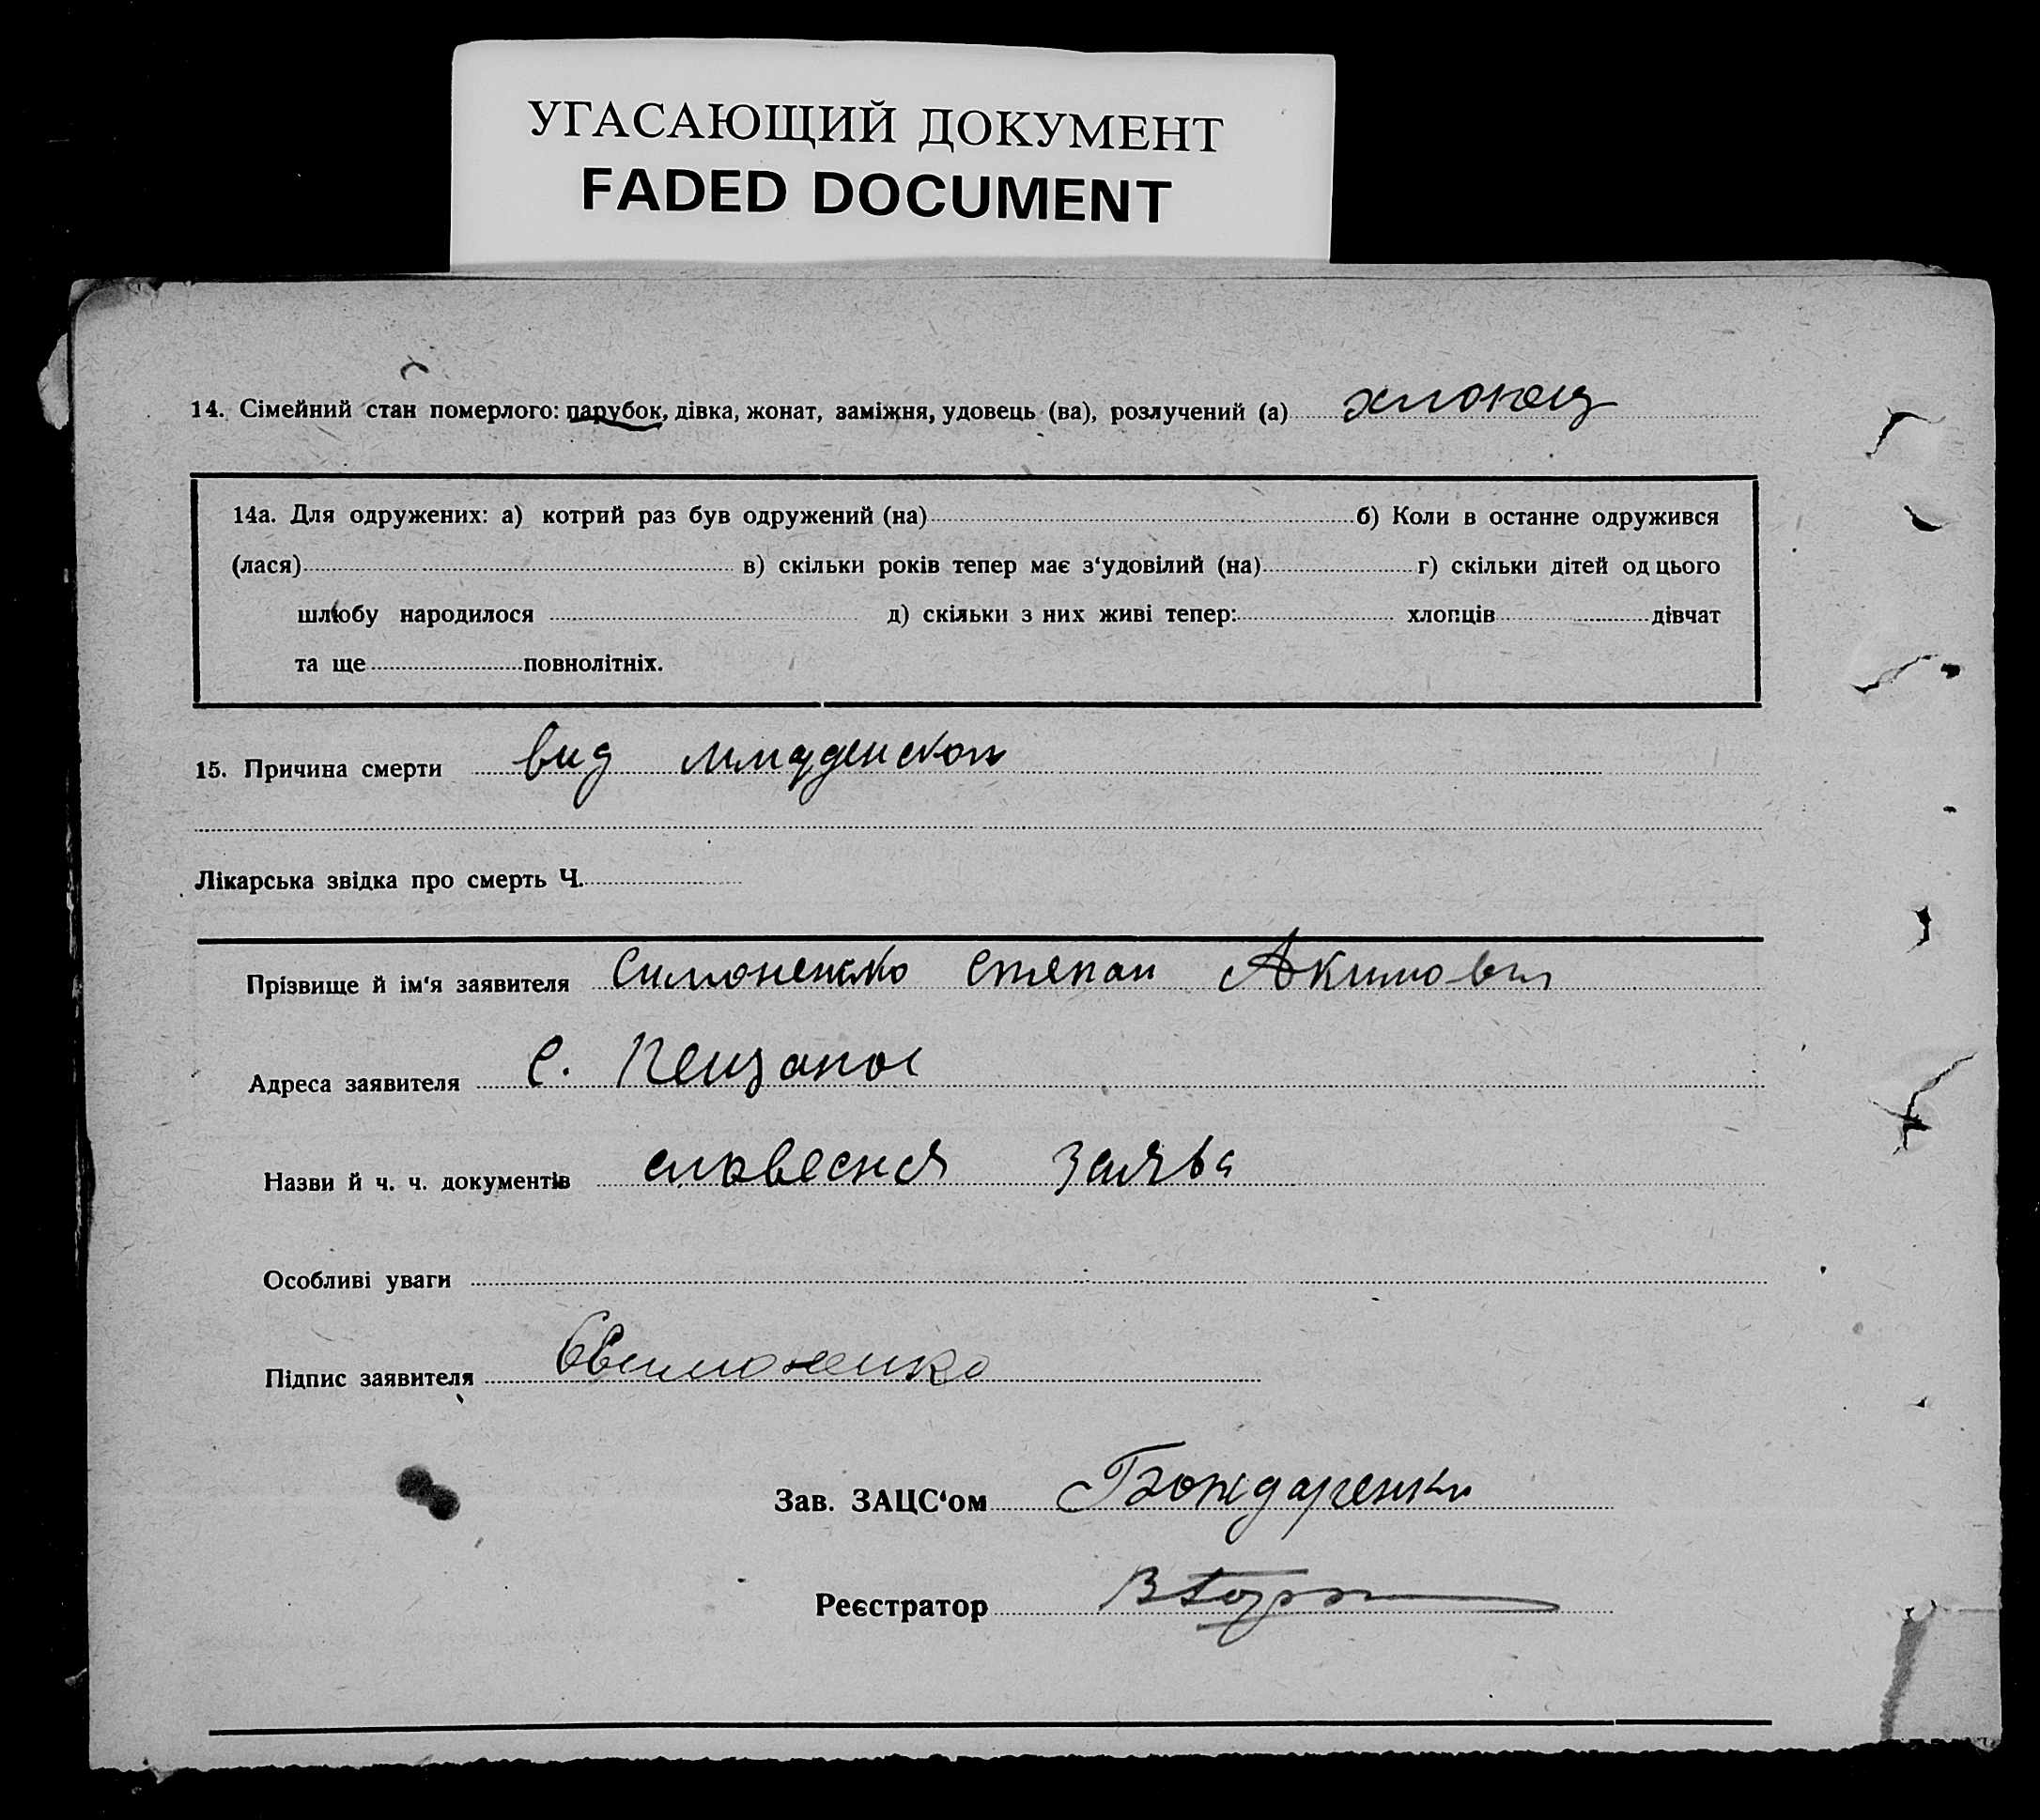 УГАСАЮЩИЙ ДОКУМЕНТ
FADED DOCUMENT
14. Сімейний стан померлого: парубок, дівка, жонат, заміжня, удовець (ва), розлучений (а) хлопец
14а. Для одружених: а) котрий раз був одружений (на) б) Коли в останне одружився
(лася) в) скільки років тепер має з‘удовілий (на) г) скільки дітей од цього
шлюбу народилося д) скільки з них живі тепер: хлопців дівчат
та ще повнолітніх.
15. Причина смерти вид младенскои
Лікарська звідка про смерть Ч.
Прізвище й ім‘я заявителя Симоненко Степан Акимович
Адреса заявителя с. Пещаное
Назви й ч. ч. документів словесная заява
Особливі уваги
Підпис заявителя Симоненко
Зав. ЗАЦС‘ом Бондаренко
Реєстратор